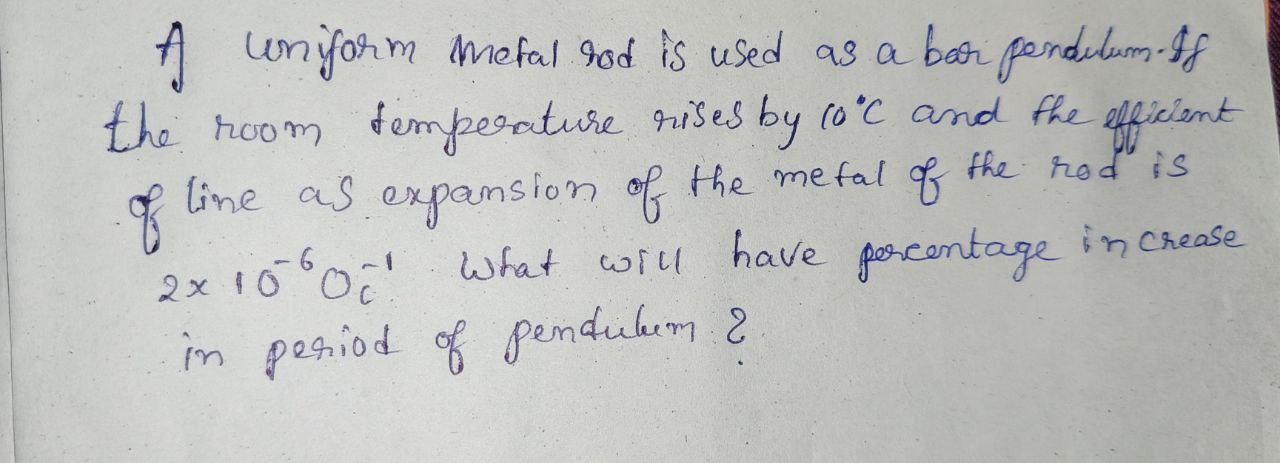 A uniform metal rod is used as a bar pendulum. If
the room temperature rises by 10°C and the efficient
of line as expansion of the metal of the rod is
2x 10⁻⁶ 0c⁻¹. What will have percentage increase
in period of pendulum ?